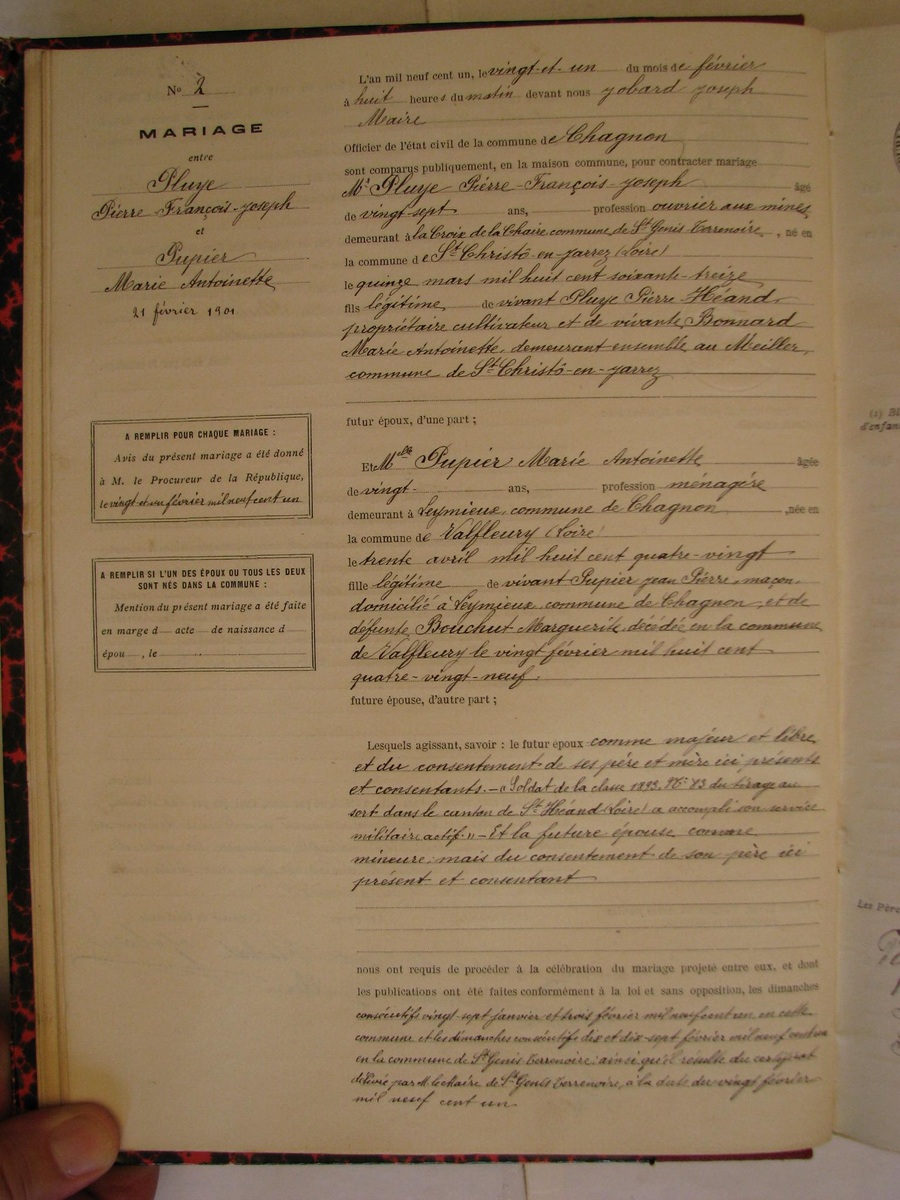 No 2
MARIAGE
entre
Pluye
Pierre-François-Joseph
et
Pupier
Marie Antoinette
21 février 1901
A REMPLIR POUR CHAQUE MARIAGE :
Avis du présent mariage a été donné
à M. le Procureur de la République,
le vingt et un février mil neuf cent un
A REMPLIR SI L'UN DES ÉPOUX OU TOUS LES DEUX
SONT NÉS DANS LA COMMUNE :
Mention du présent mariage a été faite
en marge d acte de naissance d
épou , le
L'an mil neuf cent un, le vingt-et-un du mois de février
à huit heures du matin devant nous Jobard Joseph
Maire
Officier de l'état civil de la commune de Chagnon
sont comparus publiquement, en la maison commune, pour contracter mariage
Mr Pluye Pierre-François-Joseph âgé
de vingt-sept ans, profession ouvrier aux mines,
demeurant à la Croix de la Chaire commune de St Genis Terrenoire, né en
la commune de St Christô-en-Jarrez (Loire)
le quinze mars mil huit cent soixante-treize
fils légitime de vivant Pluye Pierre Héand
propriétaire cultivateur et de vivante Bonnard
Marie Antoinette, demeurant ensemble au Meiller,
commune de St Christô-en-Jarrez
futur époux, d'une part ;
Et Mlle Pupier Marie Antoinette âgée
de vingt ans, profession ménagère
demeurant à Leymieux, commune de Chagnon , née en
la commune de Valfleury (Loire)
le trente avril mil huit cent quatre-vingt
fille légitime de vivant Pupier Jean Pierre, maçon,
domicilié à Leymieux, commune de Chagnon, et de
défunte Bouchut Marguerite, décédée en la commune
de Valfleury le vingt février mil huit cent
quatre-vingt-neuf.
future épouse, d'autre part ;
Lesquels agissant, savoir : le futur époux comme majeur et libre
et du consentement de ses père et mère ici présents
et consentants. — « Soldat de la classe 1893, No 83 du tirage au
sort dans le canton de St Héand (Loire) a accompli son service
militaire actif. » — Et la future épouse comme
mineure ; mais du consentement de son père ici
présent et consentant
nous ont requis de procéder à la célébration du mariage projeté entre eux, et dont
les publications ont été faites conformément à la loi et sans opposition, les dimanches
consécutifs vingt-sept janvier et trois février mil neuf cent un, en cette
commune et les dimanches consécutifs dix et dix-sept février mil neuf cent un
en la commune de St Genis Terrenoire ; ainsi qu'il résulte du certificat
délivré par M. le Maire de St Genis Terrenoire, à la date du vingt février
mil neuf cent un.
(1)
d'enfan
Les Père